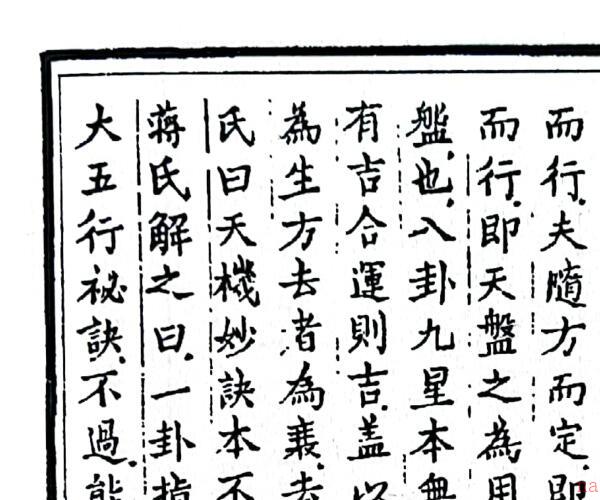 而行夫隨方而定即
而行即天盤之為用
盤也八卦九星本無
有吉合運則吉蓋以
為生方去者為衰去
氏曰天機妙訣本不
蔣氏解之曰一卦指
大五行祕訣不過能